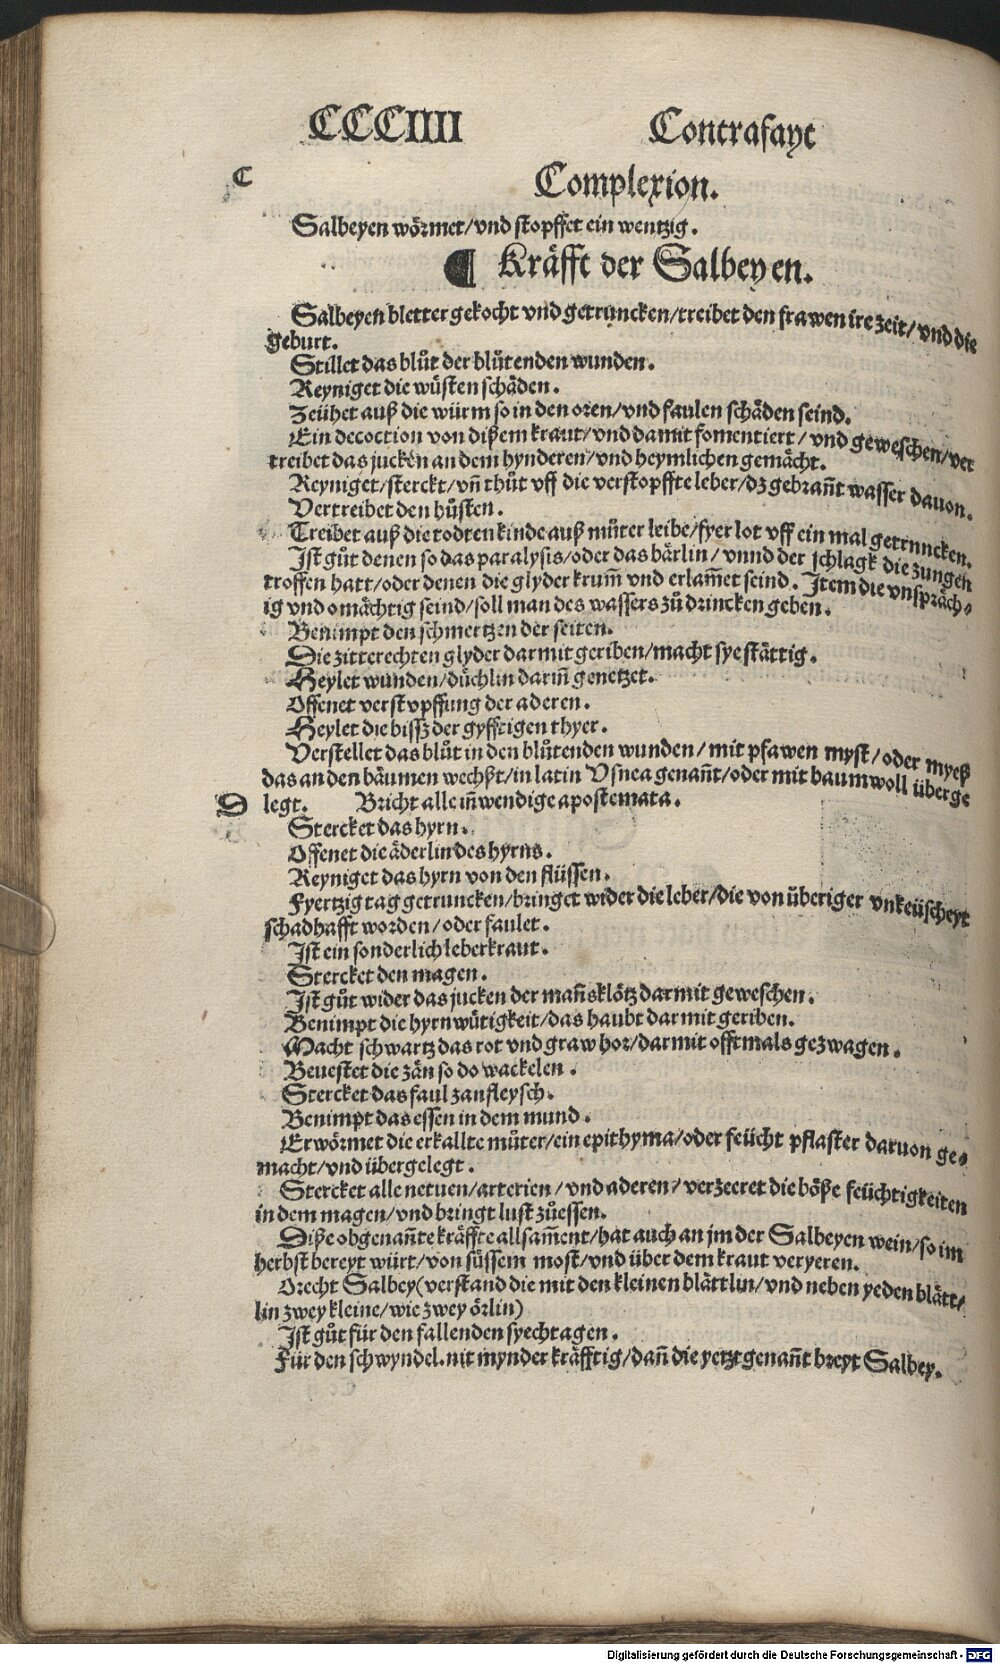 CCCIIII Contrafayt
C Complexion.
Salbeyen wörmet/vnd stopffet ein wentzig.
¶ Kräfft der Salbeyen.
Salbeyen bletter gekocht vnd getruncken/treibet den frawen ire zeit/vnd die
geburt.
Stillet das blůt der blůtenden wunden.
Reyniget die wüsten schäden.
Zeühet auß die würm so in den oren/vnd faulen schäden seind.
Ein decoction von dißem kraut/vnd damit fomentiert/vnd geweschen/ver
treibet das jucken an dem hynderen/vnd heymlichen gemächt.
Reyniget/sterckt/vñ thůt vff die verstopffte leber/dz gebrañt wasser dauon.
Vertreibet den hůsten.
Treibet auß die todten kinde auß můter leibe/fyer lot vff ein mal getruncken.
Ist gůt denen so das paralysis/oder das bärlin/vnnd der schlagk die zungen
troffen hatt/oder denen die glyder krum̃ vnd erlam̃et seind. Item die vnspräch⸗
ig vnd omächtig seind/soll man des wassers zů drincken geben.
Benimpt den schmertzen der seiten.
Die zitterechten glyder darmit geriben/macht sye stättig.
Heylet wunden/düchlin dariñ genetzet.
Offenet verstopffung der aderen.
Heylet die bissz der gyfftigen thyer.
Verstellet das blůt in den blůtenden wunden/mit pfawen myst/oder myeß
das an den bäumen wechßt/in latin Vsnea genañt/oder mit baumwoll überge
D legt. Bricht alle iñwendige apostemata.
Stercket das hyrn.
Offenet die äderlin des hyrns.
Reyniget das hyrn von den flüssen.
Fyertzig tag getruncken/bringet wider die leber/die von überiger vnkeüscheyt
schadhafft worden/oder faulet.
Ist ein sonderlich leberkraut.
Stercket den magen.
Ist gůt wider das jucken der mañsklötz darmit geweschen.
Benimpt die hyrnwütigkeit/das haubt darmit geriben.
Macht schwartz das rot vnd graw hor/darmit offtmals gezwagen.
Beuestet die zän so do wackelen.
Stercket das faul zanfleysch.
Benimpt das essen in dem mund.
Erwörmet die erkallte můter/ein epithyma/oder feücht pflaster daruon ge⸗
macht/vnd übergelegt.
Stercket alle neruen/arterien/vnd aderen/verzeeret die böße feüchtigkeiten
in dem magen/vnd bringt lust zůessen.
Diße obgenañte kräffte allsam̃ent/hat auch an jm der Salbeyen wein/so im
herbst bereyt würt/von süssem most/vnd über dem kraut veryeren.
Orecht Salbey(verstand die mit den kleinen blättlin/vnd neben yeden blätt⸗
lin zwey kleine/wie zwey örlin)
Ist gůt für den fallenden syechtagen.
Für den schwyndel.nit mynder kräfftig/dañ die yetzt genañt breyt Salbey.
Digitalisierung gefördert durch die Deutsche Forschungsgemeinschaft - DFG